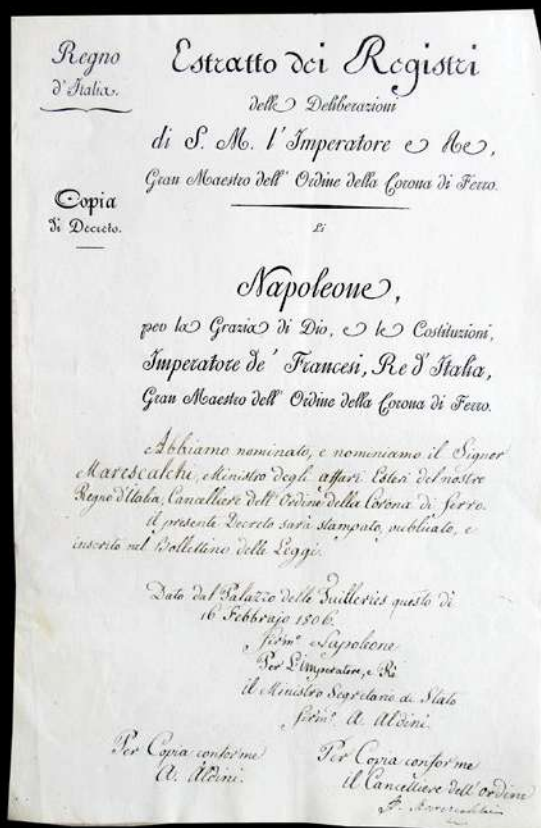 Regno
d'Italia.
Estratto dei Registri
delle Deliberazioni
di S. M. l'Imperatore e Re,
Gran Maestro dell' Ordine della Corona di Ferro.
Copia
di Decreto.
Li
Napoleone,
per la Grazia di Dio, e le Costituzioni,
Imperatore de' Francesi, Re d'Italia,
Gran Maestro dell' Ordine della Corona di Ferro.
Abbiamo nominato, e nominiamo il Signor
Marescalchi, Ministro degli affari Esteri del nostro
Regno d'Italia, Cancelliere dell' Ordine della Corona di ferro.
il presente Decreto sarà stampato, publicato, e
inscrito nel Bollettino delle Leggi.
Dato dal Palazzo delle Tuilleries questo dì
16 Febbrajo 1806.
firmo Napoleone
Per L'imperatore, e Rè
il Ministro Segretario di Stato
firmo A. Aldini.
Per Copia conforme
A. Aldini.
Per Copia conforme
il Cancelliere dell' ordine
F. Marescalchi